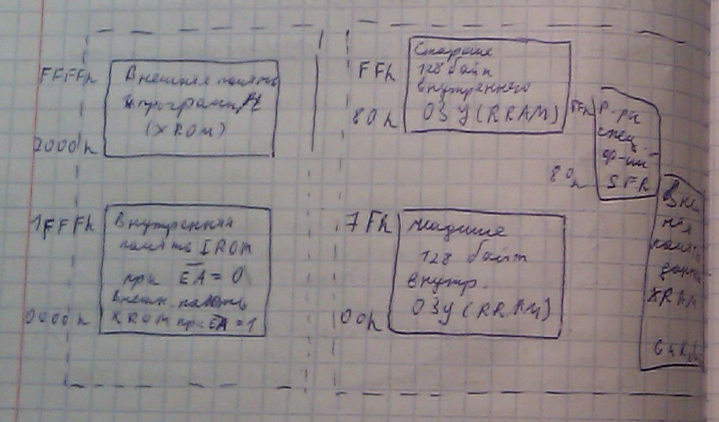 FFFFh
Внешняя память
программ
(XROM)
2000h
1FFFh
Внутренняя
память IROM
при E̅A̅=0
Внешн. память
XROM при E̅A̅=1
0000h
FFh
Старшие
128 байт
внутреннего
ОЗУ (RRAM)
80h
7Fh
Младшие
128 байт
внутр.
ОЗУ (RRAM)
00h
FFh
Р-ры
спец.
ф-ий
SFR
80h
Внеш
няя
память
данных
XRAM
64К